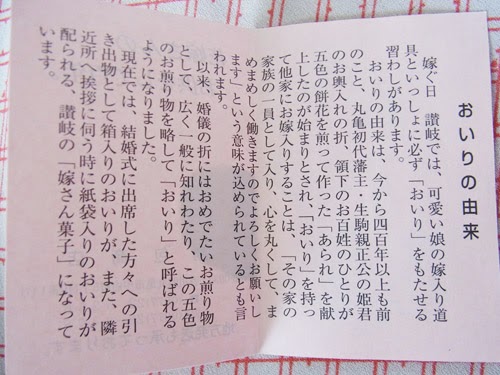 おいりの由来
嫁ぐ日　讃岐では、可愛い娘の嫁入り道
具といっしょに必ず「おいり」をもたせる
習わしがあります。
おいりの由来は、今から四百年以上も前
のこと、丸亀初代藩主・生駒親正公の姫君
のお輿入れの折、領下のお百姓のひとりが
五色の餅花を煎って作った「あられ」を献
上したのが始まりとされ、「おいり」を持っ
て他家にお嫁入りすることは、「その家の
家族の一員として入り、心を丸くして、ま
めまめしく働きますのでよろしくお願いし
ます」という意味が込められているとも言
われます。
以来、婚儀の折にはおめでたいお煎り物
として、広く一般に知れわたり、この五色
のお煎り物を略して「おいり」と呼ばれる
ようになりました。
現在では、結婚式に出席した方々への引
き出物として箱入りのおいりが、また、隣
近所へ挨拶に伺う時に紙袋入りのおいりが
配られる、讃岐の「嫁さん菓子」になって
います。